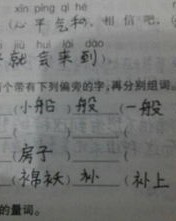 xīn píng qì hé
(心平气和,相信吧,
jiù huì lái dào
就会来到)
个带有下列偏旁的字,再分别组词。
(小船) 般 (一般
(房子
(棉袄) 补 (补上
的量词。